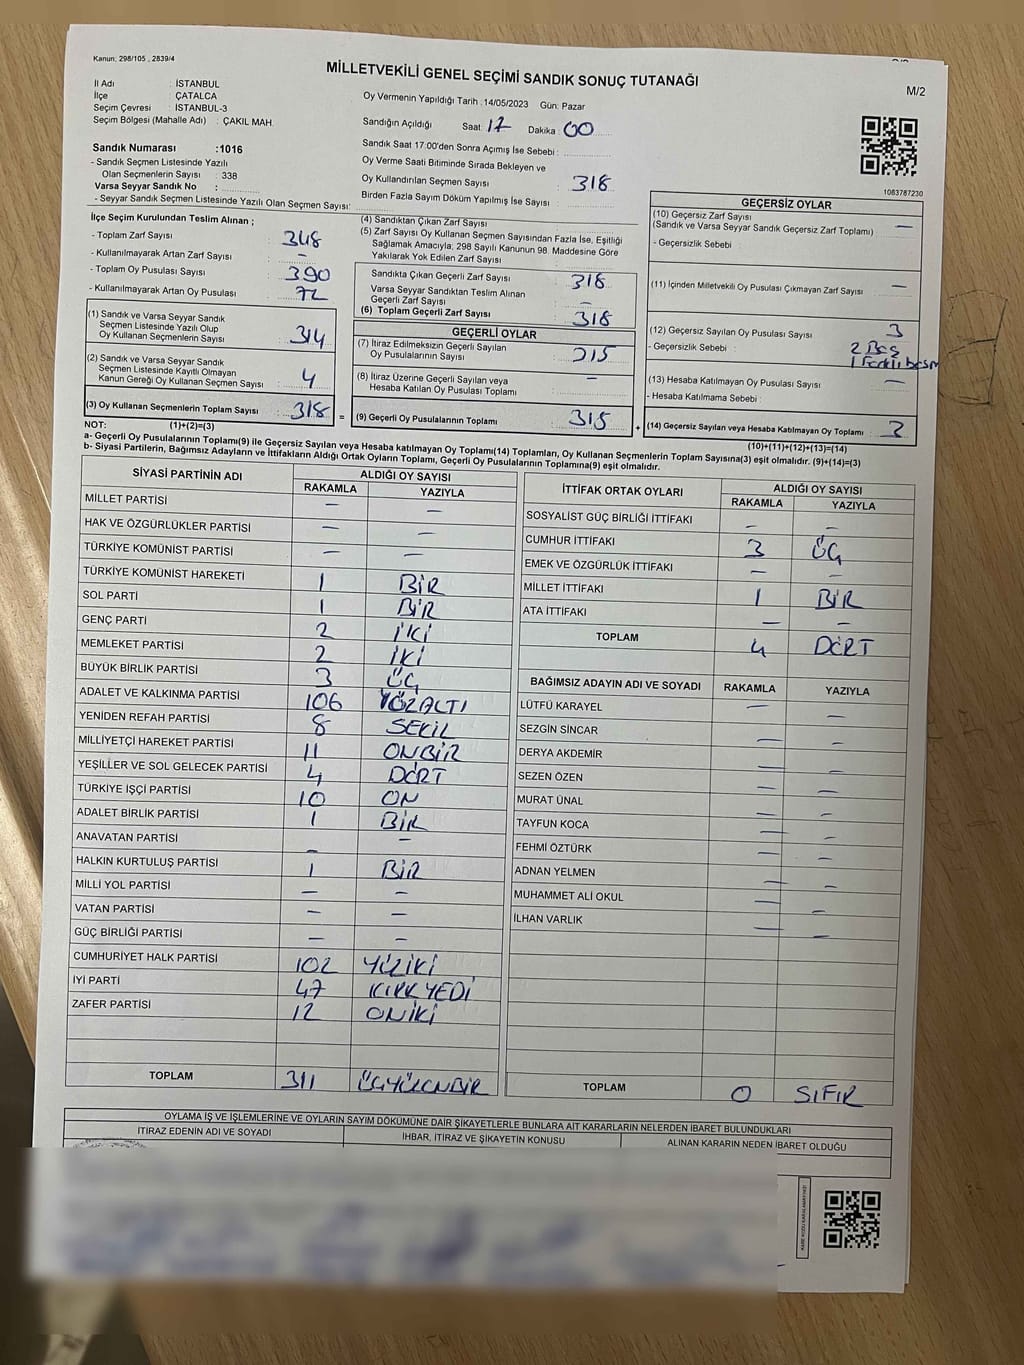 Kanun: 298/105 , 2839/4
MİLLETVEKİLİ GENEL SEÇİMİ SANDIK SONUÇ TUTANAĞI
M/2
İl Adı : İSTANBUL
İlçe : ÇATALCA
Seçim Çevresi : İSTANBUL-3
Seçim Bölgesi (Mahalle Adı) : ÇAKIL MAH.
Oy Vermenin Yapıldığı Tarih : 14/05/2023 Gün: Pazar
Sandığın Açıldığı Saat: 17 Dakika: 00
Sandık Saat 17:00'den Sonra Açımış İse Sebebi :
Oy Verme Saati Bitiminde Sırada Bekleyen ve
Oy Kullandırılan Seçmen Sayısı : 318
Birden Fazla Sayım Döküm Yapılmış İse Sayısı :
Sandık Numarası :1016
- Sandık Seçmen Listesinde Yazılı
Olan Seçmenlerin Sayısı : 338
Varsa Seyyar Sandık No :
- Seyyar Sandık Seçmen Listesinde Yazılı Olan Seçmen Sayısı:
1083787230
İlçe Seçim Kurulundan Teslim Alınan ;
- Toplam Zarf Sayısı : 348
- Kullanılmayarak Artan Zarf Sayısı : -
- Toplam Oy Pusulası Sayısı : 390
- Kullanılmayarak Artan Oy Pusulası : 72
(1) Sandık ve Varsa Seyyar Sandık
Seçmen Listesinde Yazılı Olup
Oy Kullanan Seçmenlerin Sayısı : 314
(2) Sandık ve Varsa Seyyar Sandık
Seçmen Listesinde Kayıtlı Olmayan
Kanun Gereği Oy Kullanan Seçmen Sayısı : 4
(3) Oy Kullanan Seçmenlerin Toplam Sayısı : 318 =
(4) Sandıktan Çıkan Zarf Sayısı :
(5) Zarf Sayısı Oy Kullanan Seçmen Sayısından Fazla İse, Eşitliği
Sağlamak Amacıyla; 298 Sayılı Kanunun 98. Maddesine Göre
Yakılarak Yok Edilen Zarf Sayısı :
Sandıkta Çıkan Geçerli Zarf Sayısı : 318
Varsa Seyyar Sandıktan Teslim Alınan
Geçerli Zarf Sayısı : -
(6) Toplam Geçerli Zarf Sayısı : 318
GEÇERLİ OYLAR
(7) İtiraz Edilmeksizin Geçerli Sayılan
Oy Pusulalarının Sayısı : 315
(8) İtiraz Üzerine Geçerli Sayılan veya
Hesaba Katılan Oy Pusulası Toplamı : -
(9) Geçerli Oy Pusulalarının Toplamı : 315 +
GEÇERSİZ OYLAR
(10) Geçersiz Zarf Sayısı : -
(Sandık ve Varsa Seyyar Sandık Geçersiz Zarf Toplamı)
- Geçersizlik Sebebi :
(11) İçinden Milletvekili Oy Pusulası Çıkmayan Zarf Sayısı : -
(12) Geçersiz Sayılan Oy Pusulası Sayısı : 3
- Geçersizlik Sebebi : 2 Boş
1 Farklı basım
(13) Hesaba Katılmayan Oy Pusulası Sayısı : -
- Hesaba Katılmama Sebebi :
(14) Geçersiz Sayılan veya Hesaba Katılmayan Oy Toplamı : 3
NOT: (1)+(2)=(3) (10)+(11)+(12)+(13)=(14)
a- Geçerli Oy Pusulalarının Toplamı(9) ile Geçersiz Sayılan veya Hesaba katılmayan Oy Toplamı(14) Toplamları, Oy Kullanan Seçmenlerin Toplam Sayısına(3) eşit olmalıdır. (9)+(14)=(3)
b- Siyasi Partilerin, Bağımsız Adayların ve İttifakların Aldığı Ortak Oyların Toplamı, Geçerli Oy Pusulalarının Toplamına(9) eşit olmalıdır.
SİYASİ PARTİNİN ADI ALDIĞI OY SAYISI
RAKAMLA YAZIYLA
MİLLET PARTİSİ - -
HAK VE ÖZGÜRLÜKLER PARTİSİ - -
TÜRKİYE KOMÜNİST PARTİSİ - -
TÜRKİYE KOMÜNİST HAREKETİ 1 BİR
SOL PARTİ 1 BİR
GENÇ PARTİ 2 İKİ
MEMLEKET PARTİSİ 2 İKİ
BÜYÜK BİRLİK PARTİSİ 3 ÜÇ
ADALET VE KALKINMA PARTİSİ 106 YÖZALTI
YENİDEN REFAH PARTİSİ 8 SEKİZ
MİLLİYETÇİ HAREKET PARTİSİ 11 ONBİR
YEŞİLLER VE SOL GELECEK PARTİSİ 4 DÖRT
TÜRKİYE İŞÇİ PARTİSİ 10 ON
ADALET BİRLİK PARTİSİ 1 BİR
ANAVATAN PARTİSİ - -
HALKIN KURTULUŞ PARTİSİ 1 BİR
MİLLİ YOL PARTİSİ - -
VATAN PARTİSİ - -
GÜÇ BİRLİĞİ PARTİSİ - -
CUMHURİYET HALK PARTİSİ 102 YÜZİKİ
İYİ PARTİ 47 KIRKYEDİ
ZAFER PARTİSİ 12 ONİKİ
TOPLAM 311 ÜÇYÜZONBİR
İTTİFAK ORTAK OYLARI ALDIĞI OY SAYISI
RAKAMLA YAZIYLA
SOSYALİST GÜÇ BİRLİĞİ İTTİFAKI - -
CUMHUR İTTİFAKI 3 ÜÇ
EMEK VE ÖZGÜRLÜK İTTİFAKI - -
MİLLET İTTİFAKI 1 BİR
ATA İTTİFAKI - -
TOPLAM 4 DÖRT
BAĞIMSIZ ADAYIN ADI VE SOYADI RAKAMLA YAZIYLA
LÜTFÜ KARAYEL - -
SEZGİN SİNCAR - -
DERYA AKDEMİR - -
SEZEN ÖZEN - -
MURAT ÜNAL - -
TAYFUN KOCA - -
FEHMİ ÖZTÜRK - -
ADNAN YELMEN - -
MUHAMMET ALİ OKUL - -
İLHAN VARLIK - -
TOPLAM 0 SIFIR
OYLAMA İŞ VE İŞLEMLERİNE VE OYLARIN SAYIM DÖKÜMÜNE DAİR ŞİKAYETLERLE BUNLARA AİT KARARLARIN NELERDEN İBARET BULUNDUKLARI
İTİRAZ EDENİN ADI VE SOYADI İHBAR, İTİRAZ VE ŞİKAYETİN KONUSU ALINAN KARARIN NEDEN İBARET OLDUĞU